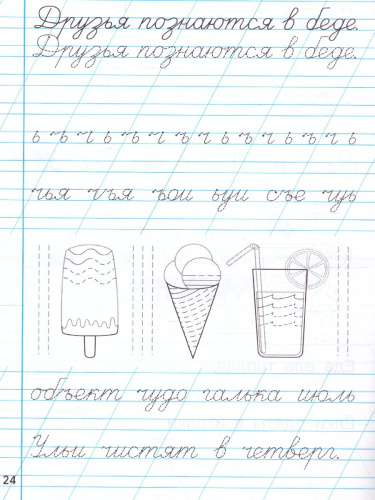 Друзья познаются в беде.
Друзья познаются в беде.
ь ъ ч ь ъ ч ъ ч ь ч ь ъ ч ь
чья чъя ъои ьуи съе чуь
объект чудо галька июль
Ульи чистят в четверг.
24